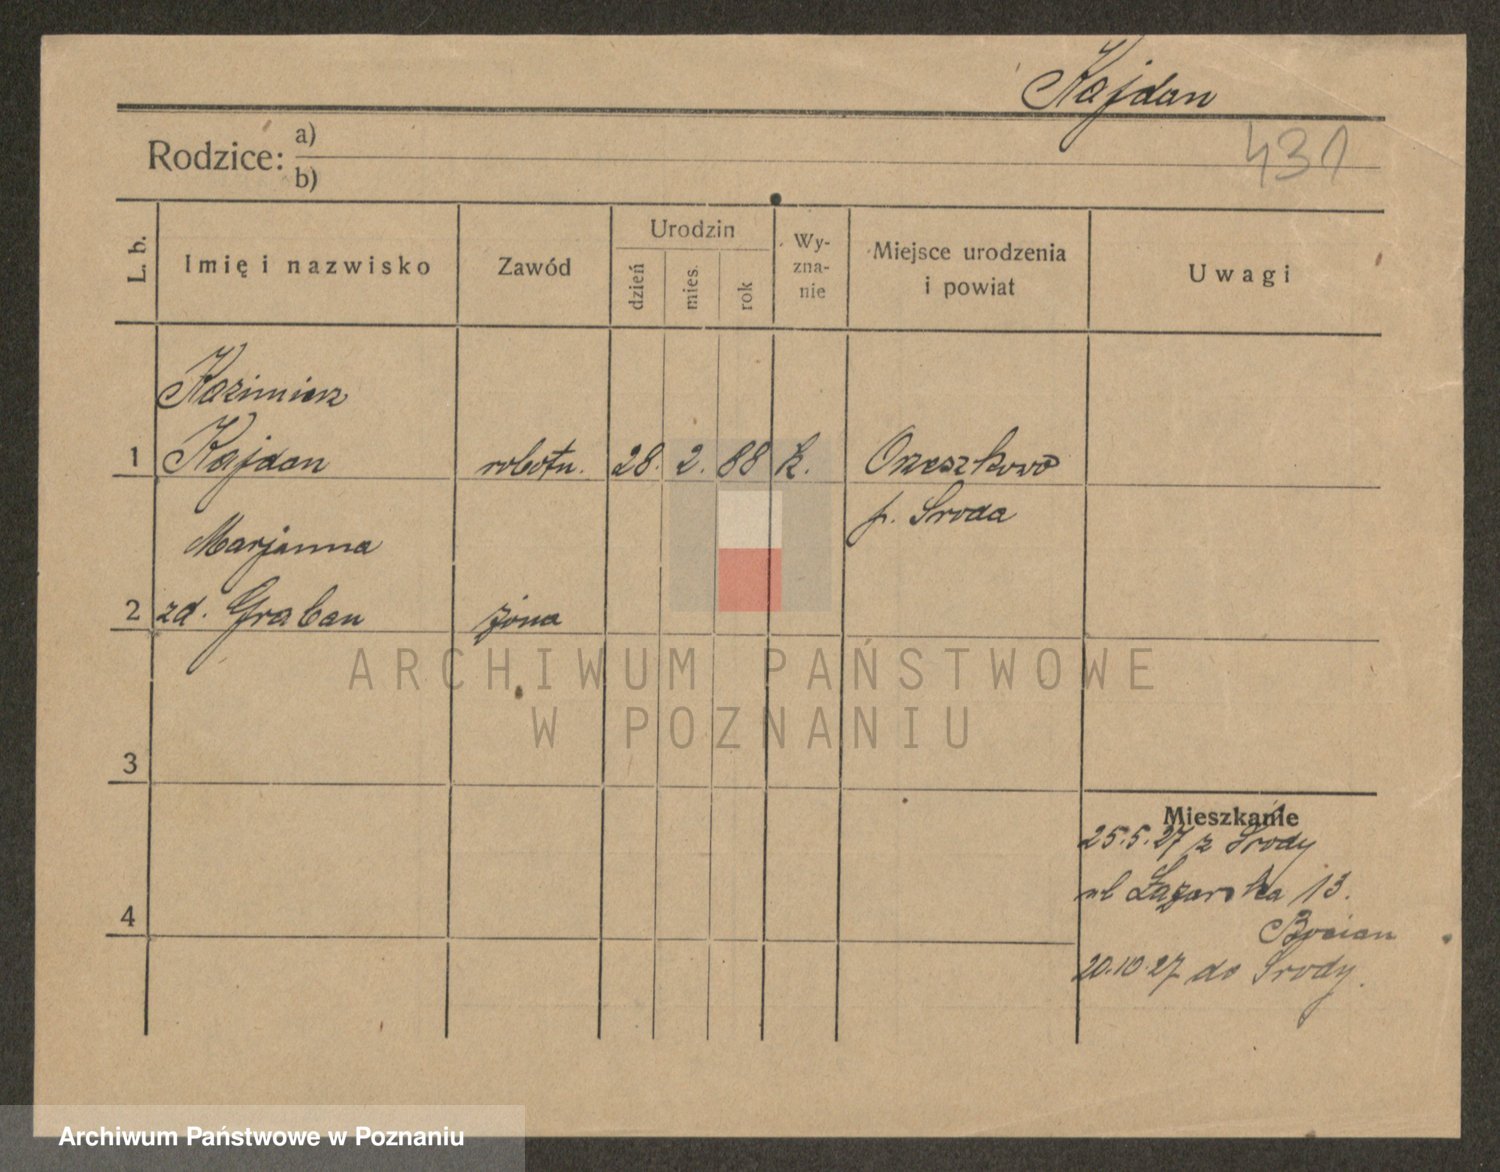 Kajdan
431
Rodzice: a)
b)
L. b.
Imię i nazwisko
Zawód
Urodzin
dzień
mies.
rok
Wy-
zna-
nie
Miejsce urodzenia
i powiat
Uwagi
Kazimierz
1 Kajdan robotn. 28. 2. 88 k. Orzeszkowo
p. Środa
Marjanna
2 zd. Graban żona
ARCHIWUM PAŃSTWOWE
W POZNANIU
3
Mieszkanie
25.5.27 z Środy
ul Łazarska 13.
Bocian
4
20.10.27 do Środy.
Archiwum Państwowe w Poznaniu